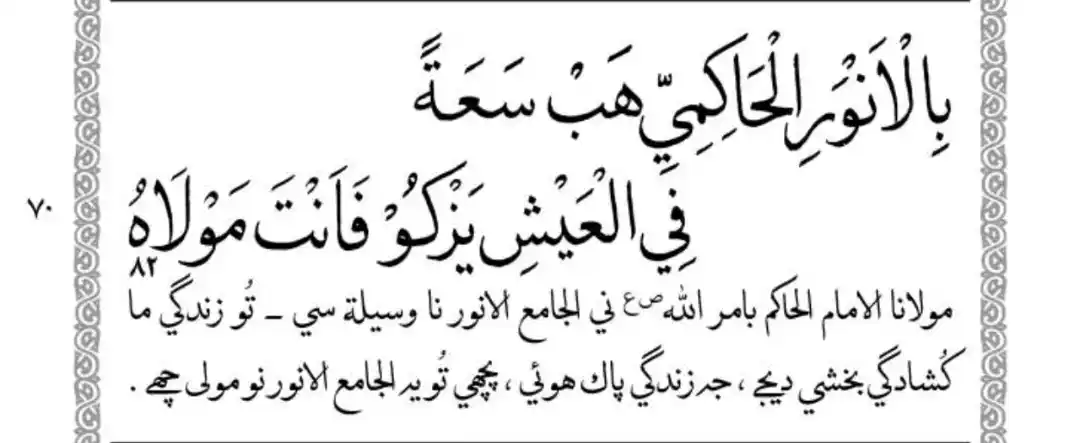 بِالْاَنْوَرِ الْحَاكِمِيِّ هَبْ سَعَةً
فِي الْعَيْشِ يَزْكُوْ فَاَنْتَ مَوْلَاهُ
٧٠
٨٢
مولانا الامام الحاكم بامر الله ص ع ني الجامع الانور نا وسيلة سي ـ تُو زندگي ما
كُشادگي بخشي ديجے ، جه زندگي پاك هوئي ، پچھي تُو يہ الجامع الانور نو مولى چھے .